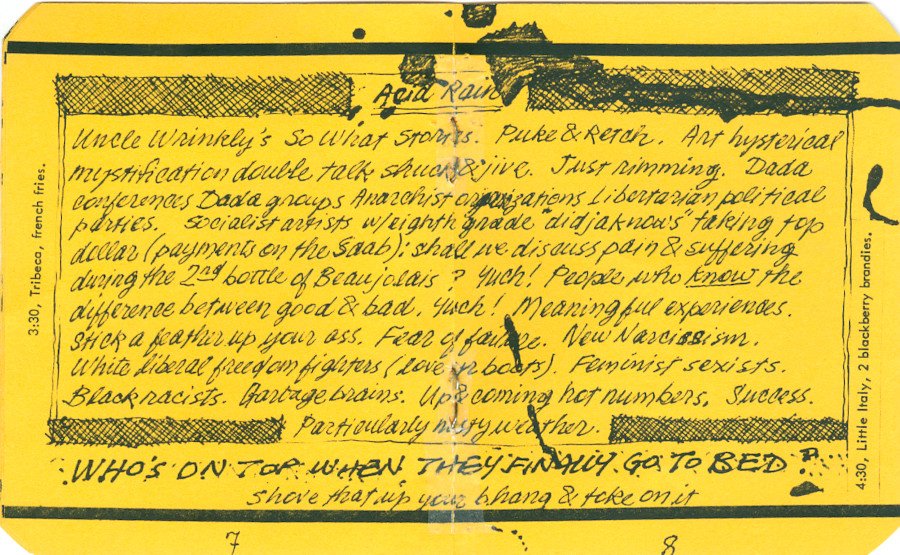 Acid Rain
Uncle Wrinkly's So What Stories. Puke & Retch. Art hysterical
mystification double talk shuck & jive. Just rimming. Dada
conferences Dada groups Anarchist organizations Libertarian political
parties. Socialist artists w/eighth grade "didjaknows" taking top
dollar (payments on the Saab): shall we discuss pain & suffering
during the 2nd bottle of Beaujolais? Yuch! People who know the
difference between good & bad. Yuch! Meaningful experiences.
Stick a feather up your ass. Fear of failure. New Narcissism.
White liberal freedom fighters (Love yr boots). Feminist sexists.
Black racists. Garbage brains. Up & coming hot numbers. Success.
Particularly nasty weather.
WHO'S ON TOP WHEN THEY FINALLY GO TO BED?
Shove that up your bhang & toke on it
3:30, Tribeca, french fries.
4:30, Little Italy, 2 blackberry brandies.
7
8